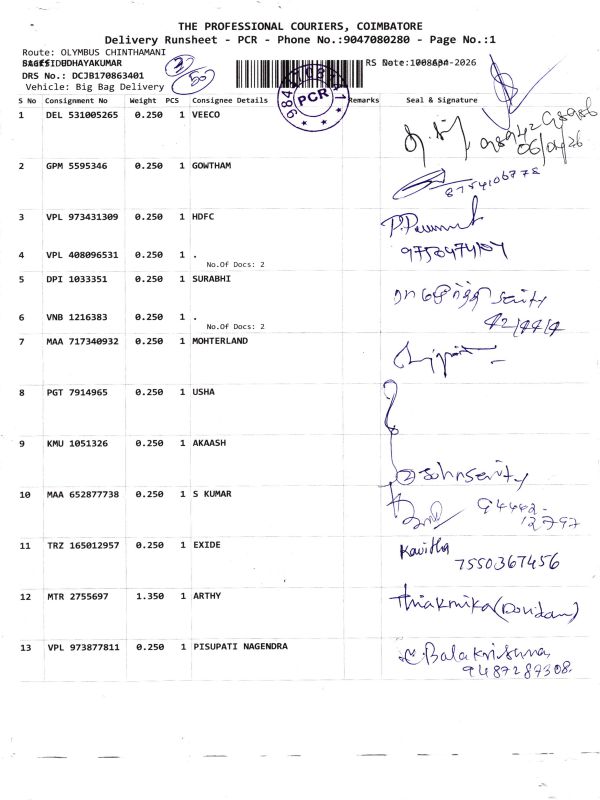 THE PROFESSIONAL COURIERS, COIMBATORE
Delivery Runsheet - PCR - Phone No.:9047080280 - Page No.:1
Route: OLYMBUS CHINTHAMANI
UDHAYAKUMAR
RS No.: Date: -2026
DRS No.: DCJB170863401
Vehicle: Big Bag Delivery
50
PCR
S No Consignment No Weight PCS Consignee Details Remarks Seal & Signature
1 DEL 531005265 0.250 1 VEECO
2 GPM 5595346 0.250 1 GOWTHAM
8754106778
3 VPL 973431309 0.250 1 HDFC
4 VPL 408096531 0.250 1 .
No.Of Docs: 2
5 DPI 1033351 0.250 1 SURABHI
6 VNB 1216383 0.250 1 .
No.Of Docs: 2
7 MAA 717340932 0.250 1 MOHTERLAND
8 PGT 7914965 0.250 1 USHA
9 KMU 1051326 0.250 1 AKAASH
10 MAA 652877738 0.250 1 S KUMAR
94442-
12797
11 TRZ 165012957 0.250 1 EXIDE Kavitha
7550367456
12 MTR 2755697 1.350 1 ARTHY
13 VPL 973877811 0.250 1 PISUPATI NAGENDRA Balakrishna
9487287308.